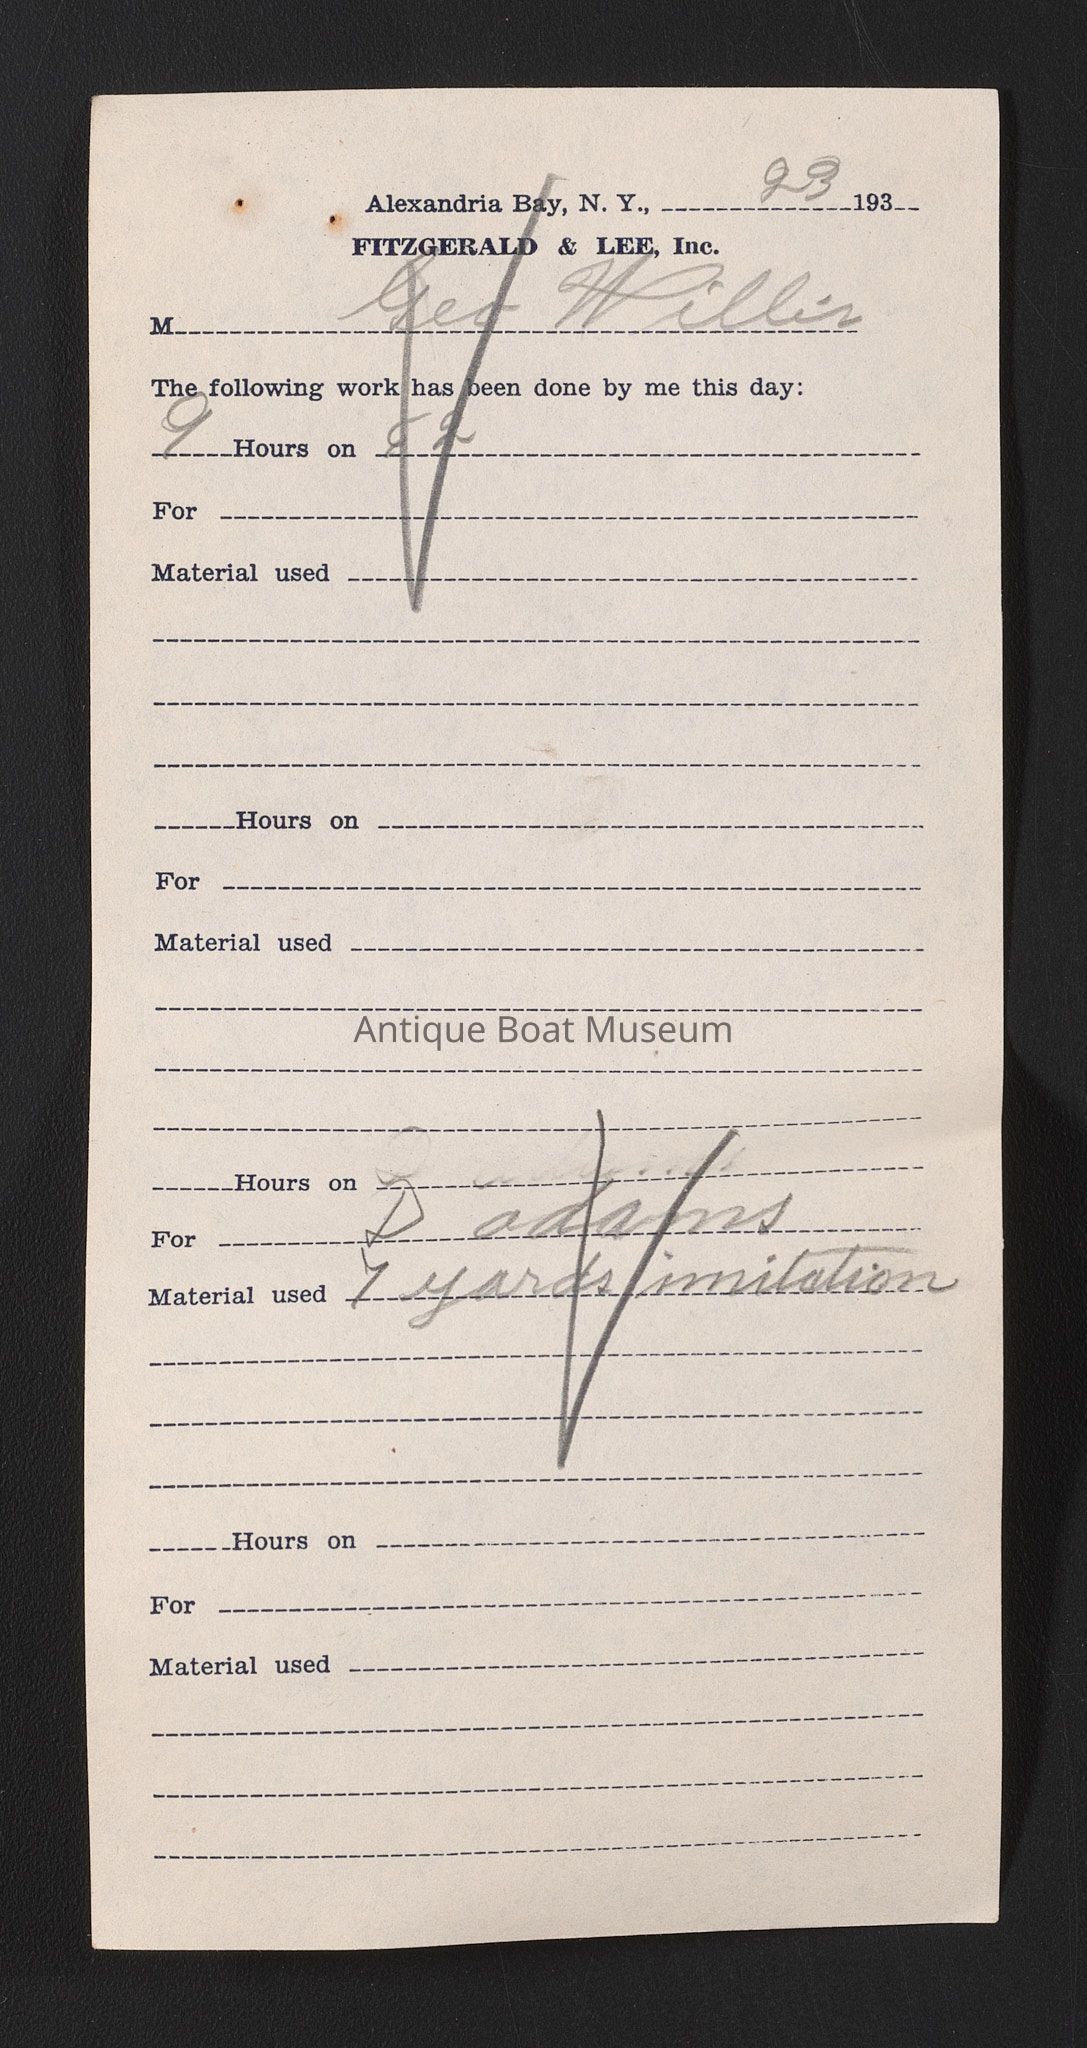 23
Alexandria Bay, N. Y., 193
FITZGERALD & LEE, Inc.
M Geo Willis
The following work has been done by me this day:
9 Hours on 22
For
Material used
Hours on
For
Material used
Antique Boat Museum
Hours on
For D adams
Material used 7 yards imitation
Hours on
For
Material used